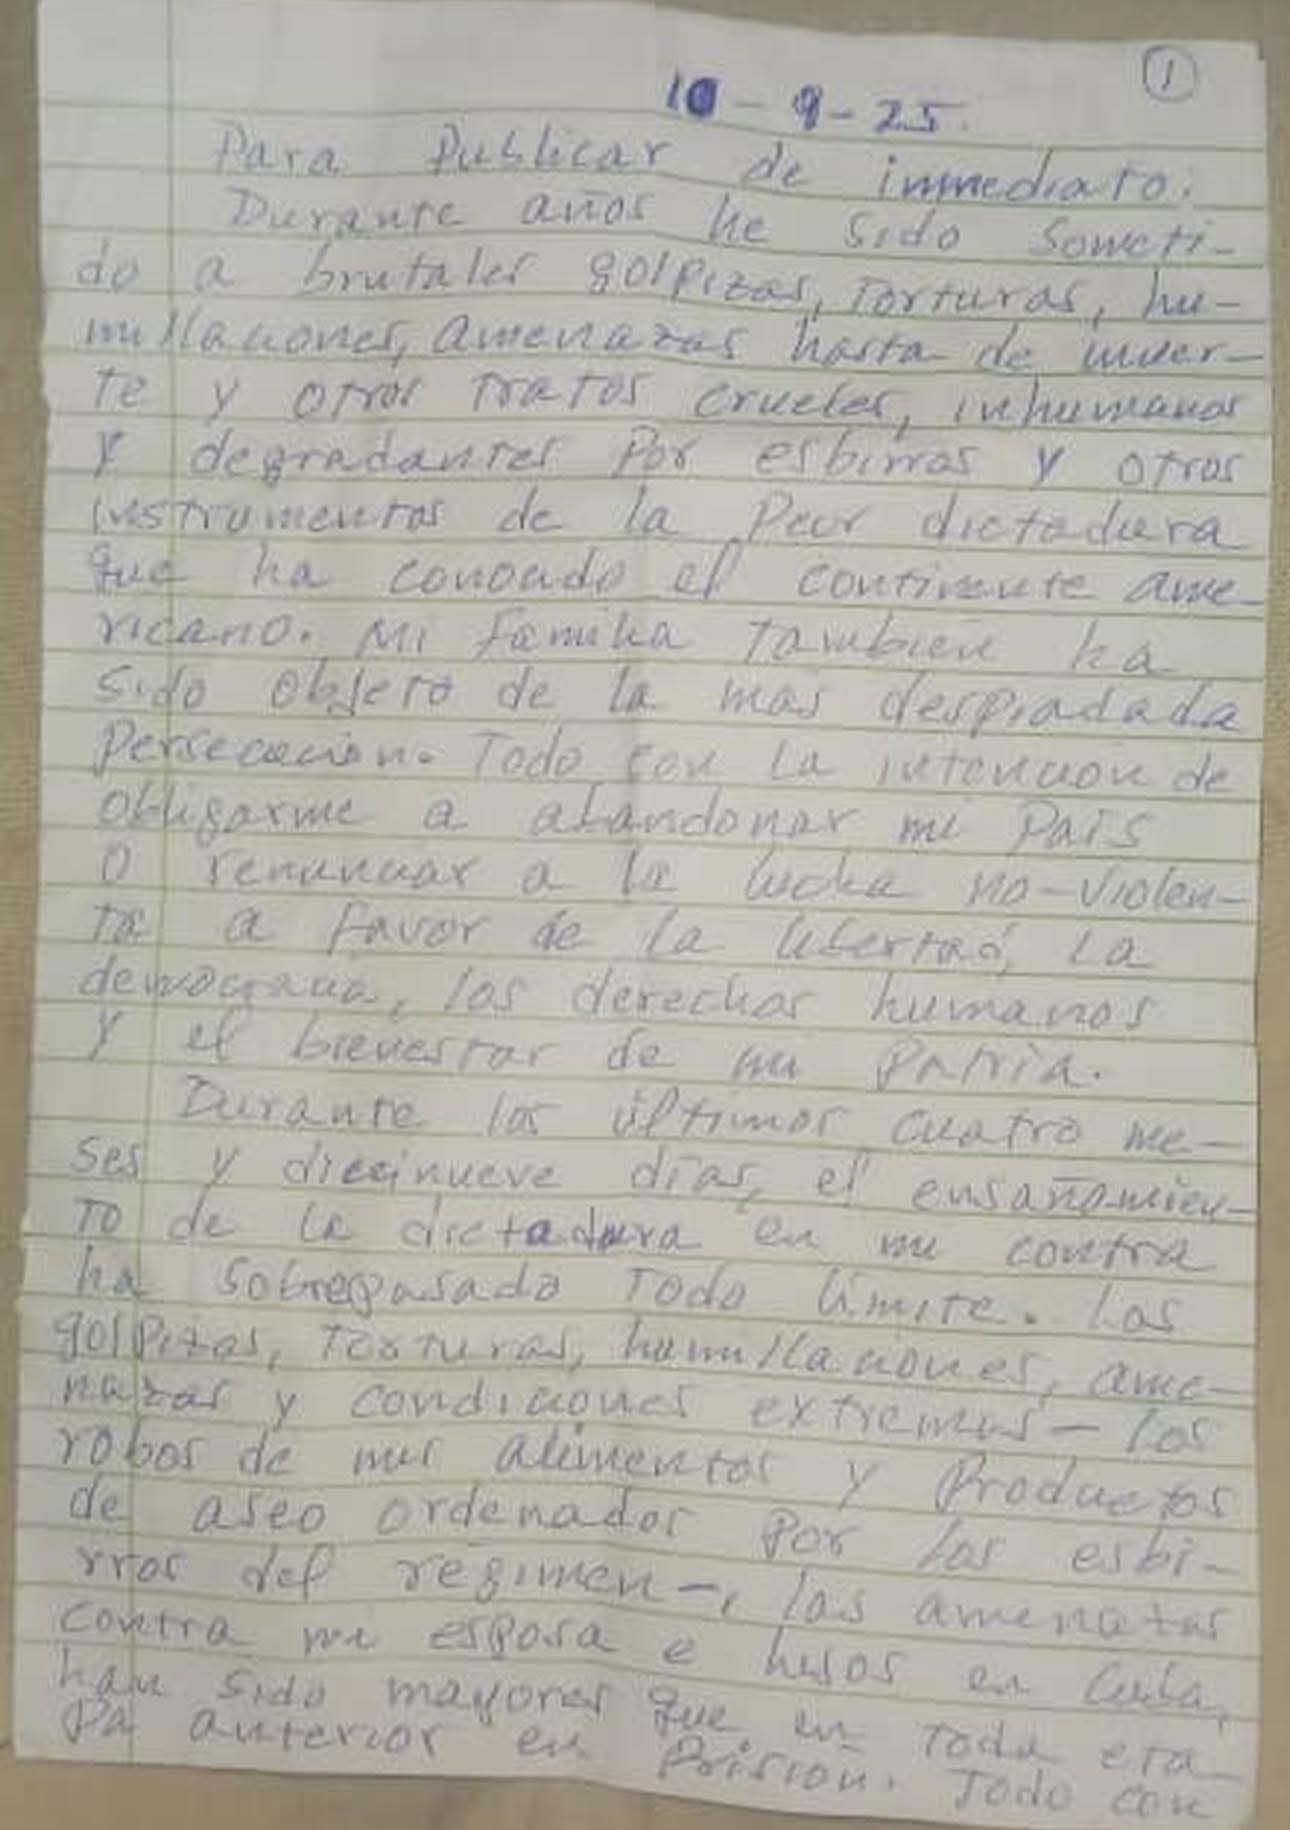 1
10-9-25.
Para Publicar de inmediato:
Durante años he sido someti-
do a brutales golpizas, torturas, hu-
millaciones, amenazas hasta de muer-
te y otros tratos crueles, inhumanos
y degradantes por esbirros y otros
instrumentos de la peor dictadura
que ha conocido el continente ame-
ricano. Mi familia también ha
sido objeto de la mas despiadada
persecución. Todo con la intención de
obligarme a abandonar mi País
o renunciar a la lucha no-violen-
ta a favor de la libertad, la
democracia, los derechos humanos
y el bienestar de mi Patria.
Durante los últimos cuatro me-
ses y diecinueve días, el ensañamien-
to de la dictadura en mi contra
ha sobrepasado todo límite. Las
golpizas, torturas, humillaciones, ame-
nazas y condiciones extremas - los
robos de mis alimentos y productos
de aseo ordenados por los esbi-
rros del régimen -, las amenazas
contra mi esposa e hijos en Cuba,
han sido mayores que en toda eta-
pa anterior en Prisión. Todo con